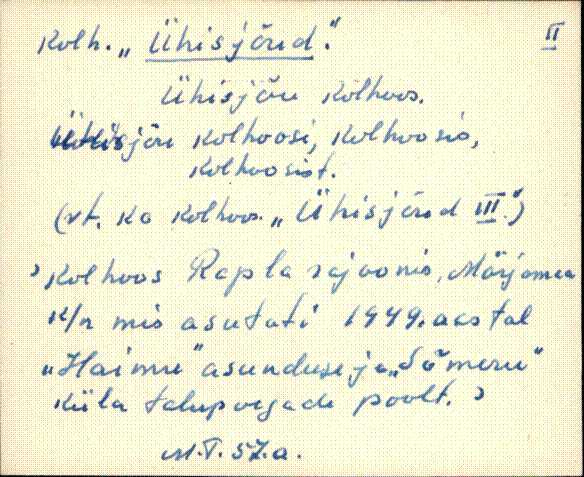 Kolh. „Ühisjõud." II
Ühisjõu kolhoos.
Ühisjõu kolhoosi, kolhoosis,
kolhoosist.
(vt. ka kolhoos „Ühisjõud III.")
Kolhoos Rapla rajoonis, Märjamaa
K/n mis asutati 1949. aastal
„Haimu" asunduse ja „Sõmeru"
küla talupoegade poolt.
M.T. 57.a.